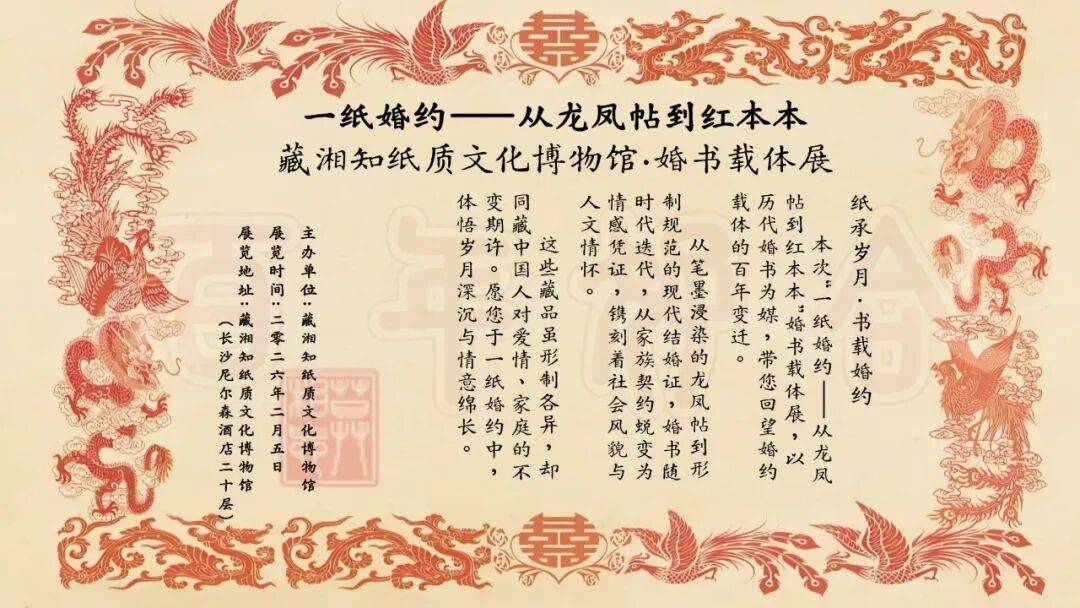 一纸婚约——从龙凤帖到红本本
藏湘知纸质文化博物馆·婚书载体展
纸承岁月·书载婚约
本次“一纸婚约——从龙凤
帖到红本本”婚书载体展，以
历代婚书为媒，带您回望婚约
载体的百年变迁。
从笔墨浸染的龙凤帖到形
制规范的现代结婚证，婚书随
时代迭代，从家族契约蜕变为
情感凭证，镌刻着社会风貌与
人文情怀。
这些藏品虽形制各异，却
同藏中国人对爱情、家庭的不
变期许。愿您于一纸婚约中，
体悟岁月深沉与情意绵长。
主办单位：藏湘知纸质文化博物馆
展览时间：二零二六年二月五日
展览地址：藏湘知纸质文化博物馆
（长沙尼尔森酒店二十层）
囍
囍